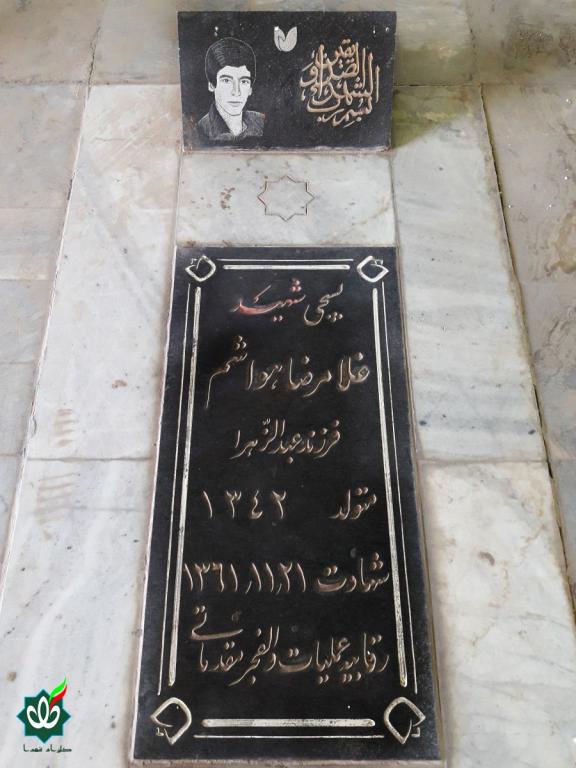 بسم رب الشهداء و الصدیقین
بسیجی شهید
غلامرضا هواشم
فرزند عبدالزّهرا
متولد ۱۳۴۲
شهادت ۱۳۶۱٫۱۱٫۲۱
رقابیه عملیات والفجر مقدماتی
گلزار شهدا